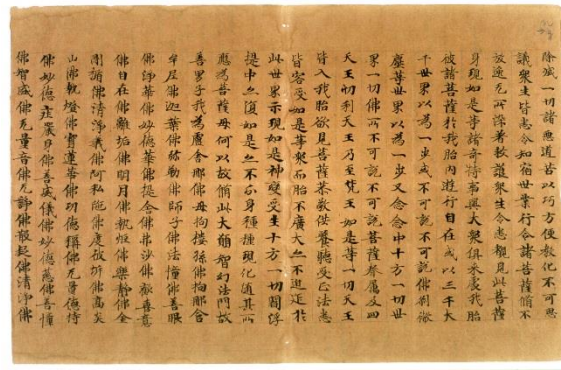 除滅一切諸惡道苦以巧方便教化不可思
議衆生皆悉令知宿世業行令諸菩薩脩不
放逸无所著教衆生令悉覩見此菩薩
身現如是等諸奇特事與大衆俱來處我胎
彼諸菩薩於我胎內遊行自在或以三千大
千世界以為一步或不可說不可說佛剎微
塵等世界以為一步又念念中十方一切世
界一切佛所不可說不可說菩薩眷屬及四
天王忉利天王乃至梵王如是等一切天王
皆入我胎欲見菩薩恭敬供養聽受正法悉
皆容受如是等衆而胎不廣大亦不迫迮於
此世界示現如是神變受生十方一切閻浮
提中亦復如是亦不分身種種現化隨其所
應為菩薩母何以故脩此大願智幻法門故
善男子我為盧舍那佛母拘樓孫佛拘那含
牟尼佛迦葉佛弥勒佛師子佛法幢佛善眼
佛淨華佛妙德華佛提舍佛弗沙佛意
佛自在佛離垢佛明月佛執炬佛樂靜佛金
剛佛清淨義佛阿私陁佛度彼岸佛高炎
山佛執燈佛寶蓮華佛功德稱佛无量德持
佛妙德莊嚴身佛善威儀佛妙德慈佛善幢
佛智威佛无量音佛无諍佛散起佛清淨佛